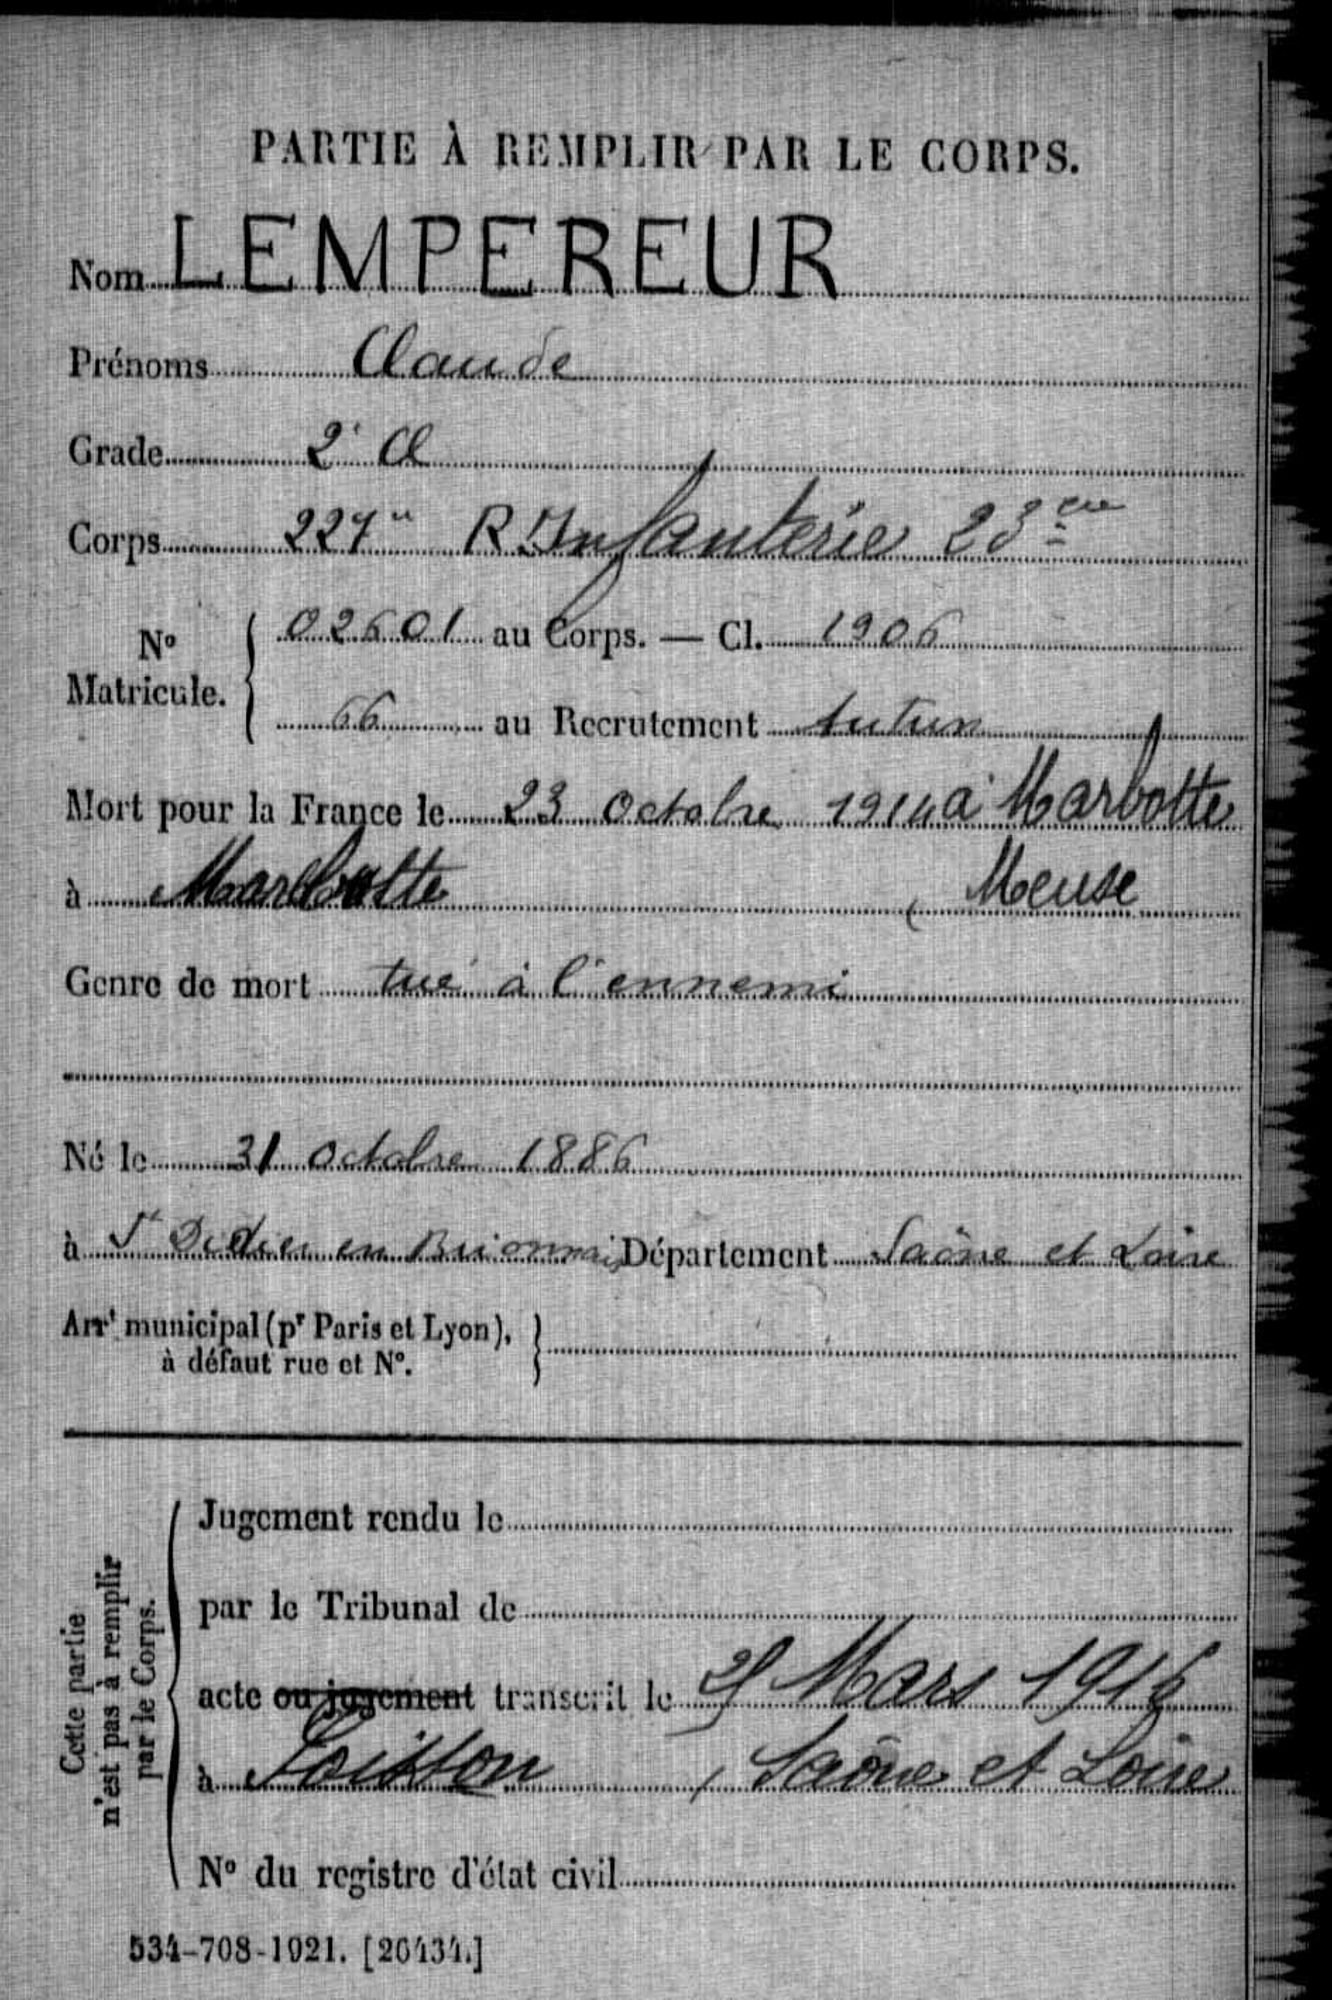 PARTIE À REMPLIR PAR LE CORPS.
Nom LEMPEREUR
Prénoms Claude
Grade 2e Cl
Corps 227e R. Infanterie 23me
No Matricule. 02601 au Corps. — Cl. 1906
66 au Recrutement Autun
Mort pour la France le 23 octobre 1914 à Marbotte
à Marbotte, Meuse
Genre de mort tué à l'ennemi
Né le 31 octobre 1886
à St Didier en Brionnais Département Saône et Loire
Arrt municipal (pr Paris et Lyon), à défaut rue et No.
Cette partie n'est pas à remplir par le Corps.
Jugement rendu le
par le Tribunal de
acte ou jugement transcrit le Mars 1916
à Poisson, Saône et Loire
No du registre d'état civil
534-708-1921. [26434.]